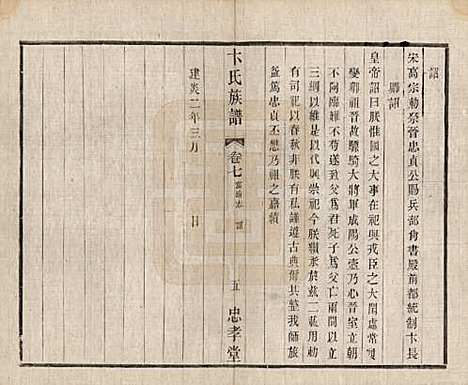 詔
宋高宗勅祭晉忠貞公賜兵部尙書殿前都統制卞長
賜詔
皇帝詔曰朕惟國之大事在祀與戎臣之大閑處常
變卿祖晉故驃騎大將軍成陽公壼乃心晉室立朝
不阿臨難不苟遂致父爲君死子爲父亡兩盡
三綱以維是以代興崇祀今朕頼承於茲二載用勅
有司祀以春秋非朕有私謹遵古典爾其整我師旅
益篤忠貞丕懋乃祖之嘉績
建炎二年三月 日
卞氏族譜
卷七
五
忠孝堂